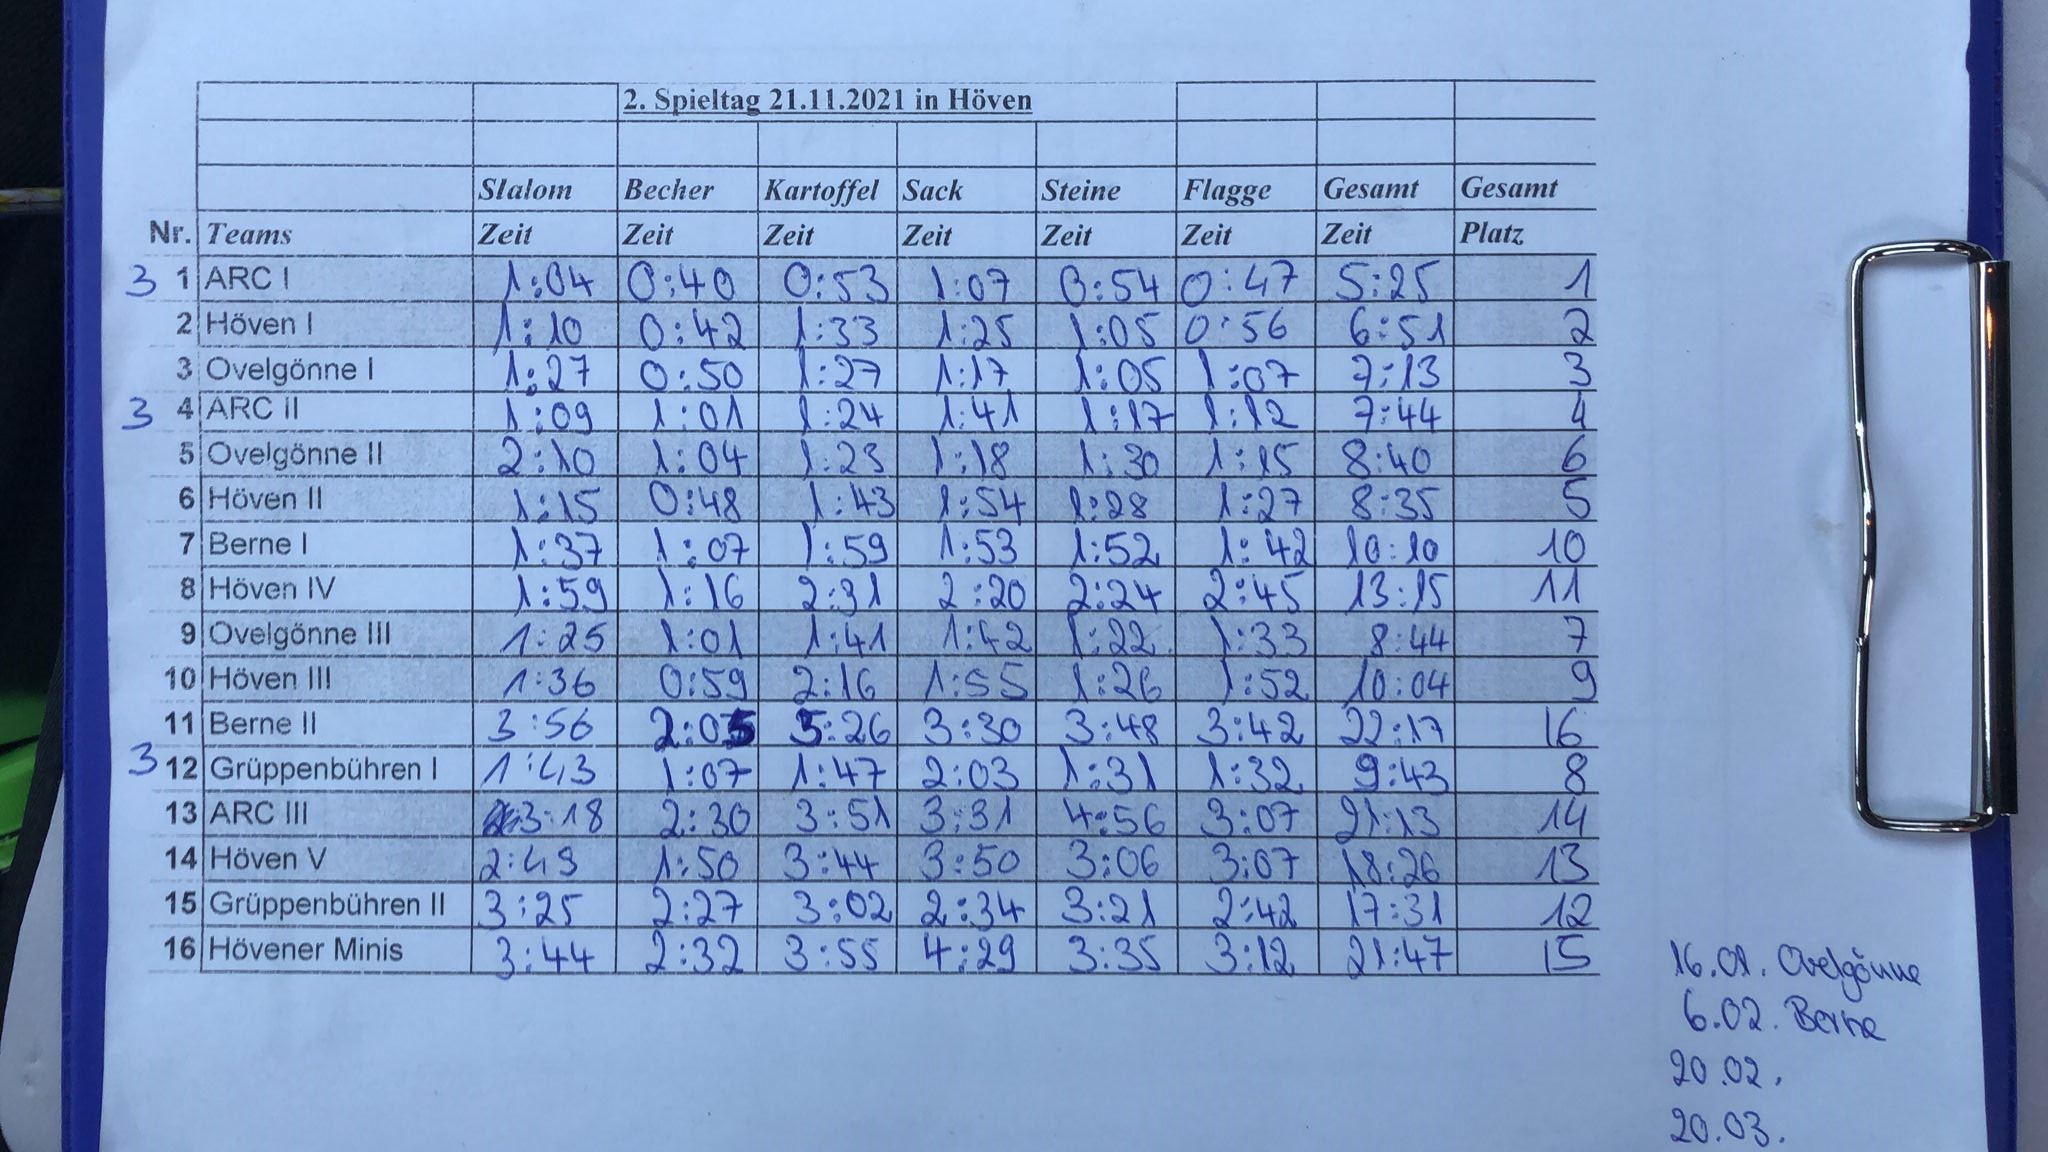 2. Spieltag 21.11.2021 in Höven
Slalom Becher Kartoffel Sack Steine Flagge Gesamt Gesamt
Nr. Teams Zeit Zeit Zeit Zeit Zeit Zeit Zeit Platz
3 1 ARC I 1:04 0:40 0:53 1:07 0:54 0:47 5:25 1
2 Höven I 1:10 0:42 1:33 1:25 1:05 0:56 6:51 2
3 Ovelgönne I 1:27 0:50 1:27 1:17 1:05 1:07 7:13 3
3 4 ARC II 1:09 1:01 1:24 1:41 1:17 1:12 7:44 4
5 Ovelgönne II 2:10 1:04 1:23 1:18 1:30 1:15 8:40 6
6 Höven II 1:15 0:48 1:43 1:54 1:28 1:27 8:35 5
7 Berne I 1:37 1:07 1:59 1:53 1:52 1:42 10:10 10
8 Höven IV 1:59 1:16 2:31 2:20 2:24 2:45 13:15 11
9 Ovelgönne III 1:25 1:01 1:41 1:42 1:22 1:33 8:44 7
10 Höven III 1:36 0:59 2:16 1:55 1:26 1:52 10:04 9
11 Berne II 3:56 2:05 5:26 3:30 3:48 3:42 22:17 16
3 12 Grüppenbühren I 1:43 1:07 1:47 2:03 1:31 1:32 9:43 8
13 ARC III 3:18 2:30 3:51 3:31 4:56 3:07 21:13 14
14 Höven V 2:49 1:50 3:44 3:50 3:06 3:07 18:26 13
15 Grüppenbühren II 3:25 2:27 3:02 2:34 3:21 2:42 17:31 12
16 Hövener Minis 3:44 2:32 3:55 4:29 3:35 3:12 21:47 15
16.01. Ovelgönne
6.02. Berne
20.02.
20.03.